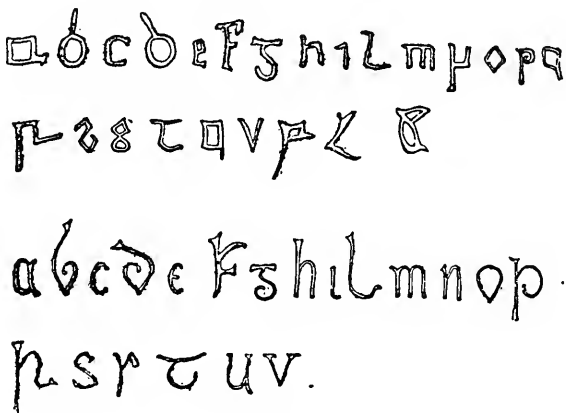 a b c d e f g h ı l m n o p q
r s s t
a b c d e f g h ı l m n o p .
r s r t u v .